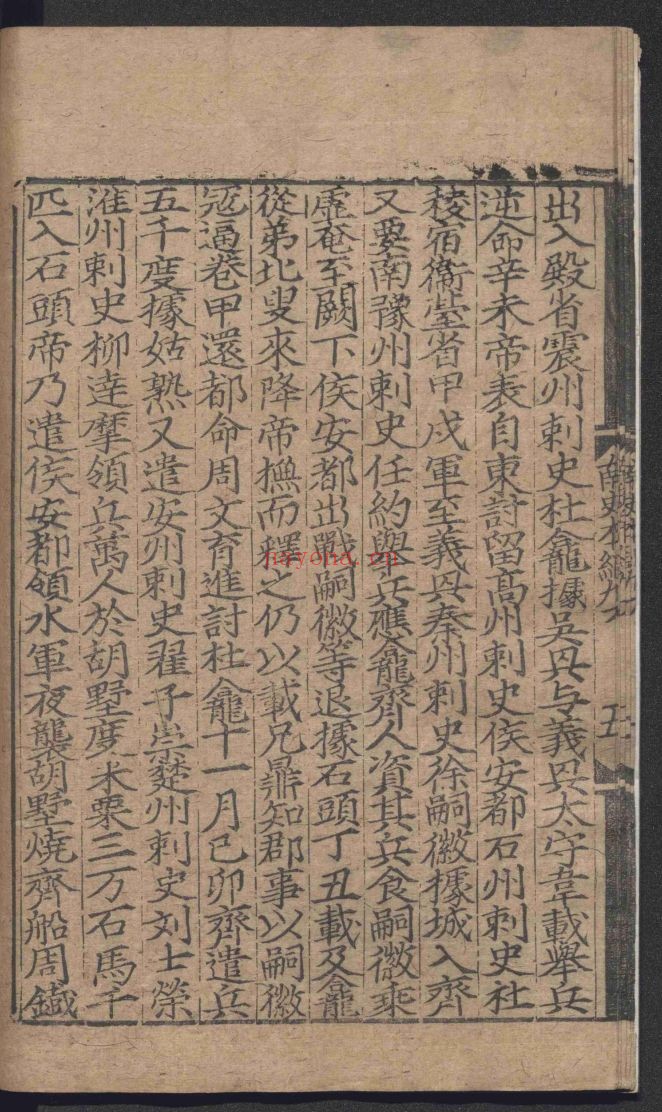 出入殿省震州刺史杜龕據吳㒷与義㒷太守韋載舉兵
逆命辛未帝表自東討留高州刺史侯安都石州刺史杜
稜宿衛臺省甲戌軍至義㒷秦州刺史徐嗣徽據城入齊
又要南豫州刺史任約舉兵應龕齊人資其兵食嗣徽乘
虛奄至闕下侯安都出戰嗣徽等退據石頭丁丑載及龕
從弟北叟來降帝撫而釋之仍以載兄鼎知郡事以嗣徽
寇逼卷甲還都命周文育進討杜龕十一月己卯齊遣兵
五千度據姑熟又遣安州刺史翟子崇楚州刺史刘士榮
淮州刺史柳達摩領兵萬人於胡墅度米粟三万石馬千
匹入石頭帝乃遣侯安都領水軍夜襲胡墅燒齊船周鐵
南史本紀九
五